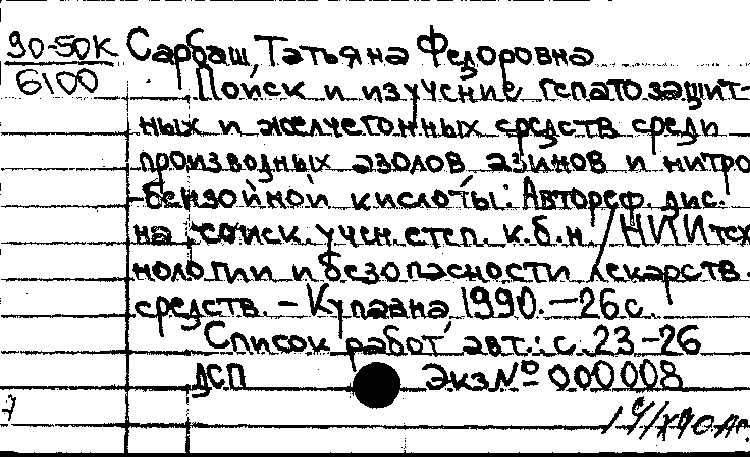 90-50К Сарбаш, Татьяна Федоровна
6100 Поиск и изучение гепатозащит-
ных и желчегонных средств среди
производных азолов азинов и нитро
-бензойной кислоты: Автореф. дис.
на соиск. учен. степ. к.б.н. / НИИ тех
нологии и безопасности лекарств.
средств. – Купавна, 1990. – 26 с.
Список работ авт.: с. 23-26
ДСП Экз № 000008